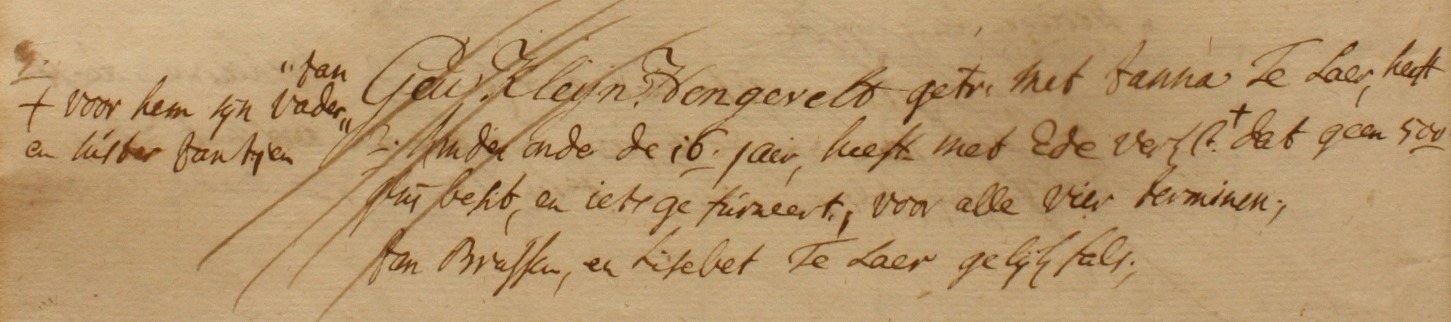 2.
"Jan
+ voor hem syn Vader"
en suster Jantjen
Geu. Kleijn Hengevelt getr. met Janna Te Laer, heeft
2. kinder onder de 16. jaer, heeft met Ede verkl.+ dat geen 500
besit, en iets gefurneert., voor alle vier terminen.,
Jan Brussen, en Lisebet Te Laer gelijk fals.,